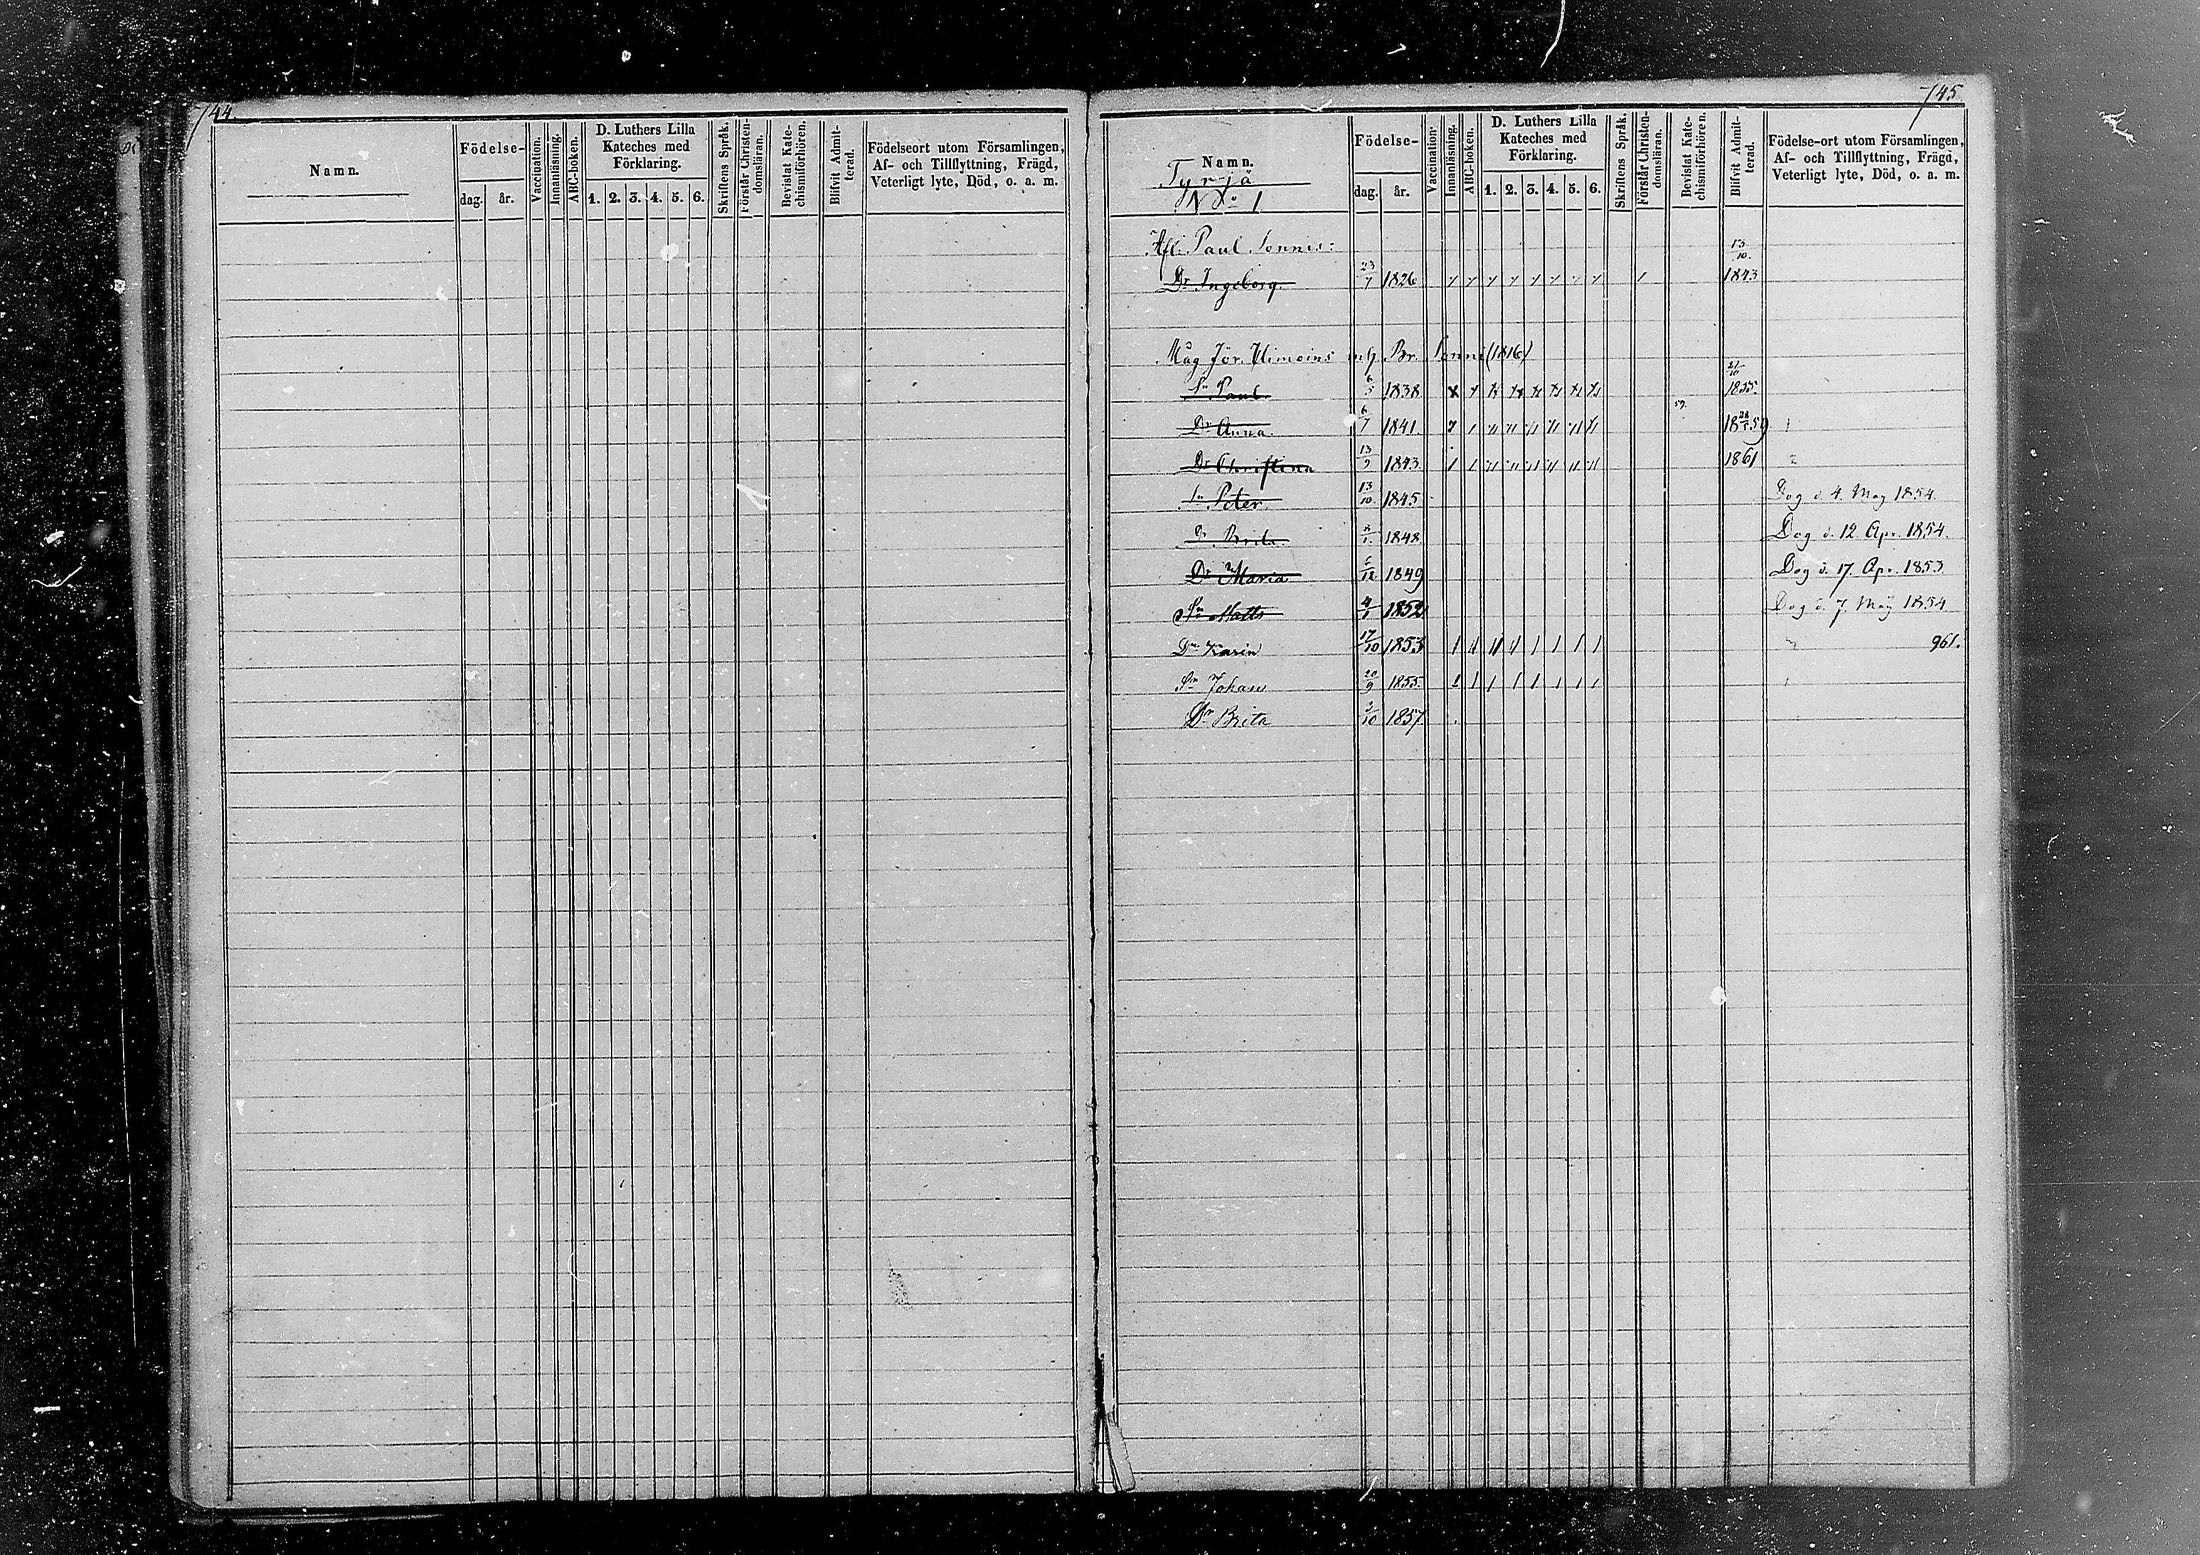 744.
Namn.
Födelse-
dag. år.
Vaccination.
Innanläsning.
ABC-boken.
D. Luthers Lilla
Kateches med
Förklaring.
1. 2. 3. 4. 5. 6.
Skriftens Språk.
Förstår Christen-
domsläran.
Bevistat Kate-
chismiförhören.
Blifvit Admit-
terad.
Födelseort utom Församlingen,
Af- och Tillflyttning, Frägd,
Veterligt lyte, Död, o. a. m.
745.
Namn.
Tyrjä
No 1
Födelse-
dag. år.
Vaccination.
Innanläsning.
ABC-boken.
D. Luthers Lilla
Kateches med
Förklaring.
1. 2. 3. 4. 5. 6.
Skriftens Språk.
Förstår Christen-
domsläran.
Bevistat Kate-
chismiförhören.
Blifvit Admit-
terad.
Födelse-ort utom Församlingen,
Af- och Tillflyttning, Frägd,
Veterligt lyte, Död, o. a. m.
Afl. Paul Sonnis:
Dr Ingeborg 23/7 1826 13/10. 1843
Måg Jör. Br. Sonni (1816)
Sn Paul 6/5 1838 1855.
Dr Anna 6/7 1841. 59. 1859
Dr Christina 13/9 1843 1861
Sn Peter 13/10 1845 Dog d. 4. May 1854.
Dr Brita 1848 Dog d. 12 Apr. 1854.
Dr Maria 6/12 1849 Dog d. 17. Apr. 1853
Sn Matts 4/1 1852 Dog d. 7. Maÿ 1854
Dr Karin 17/10 1853 961.
Sn Johan 20/9 1855.
Dr Brita 3/10 1857.